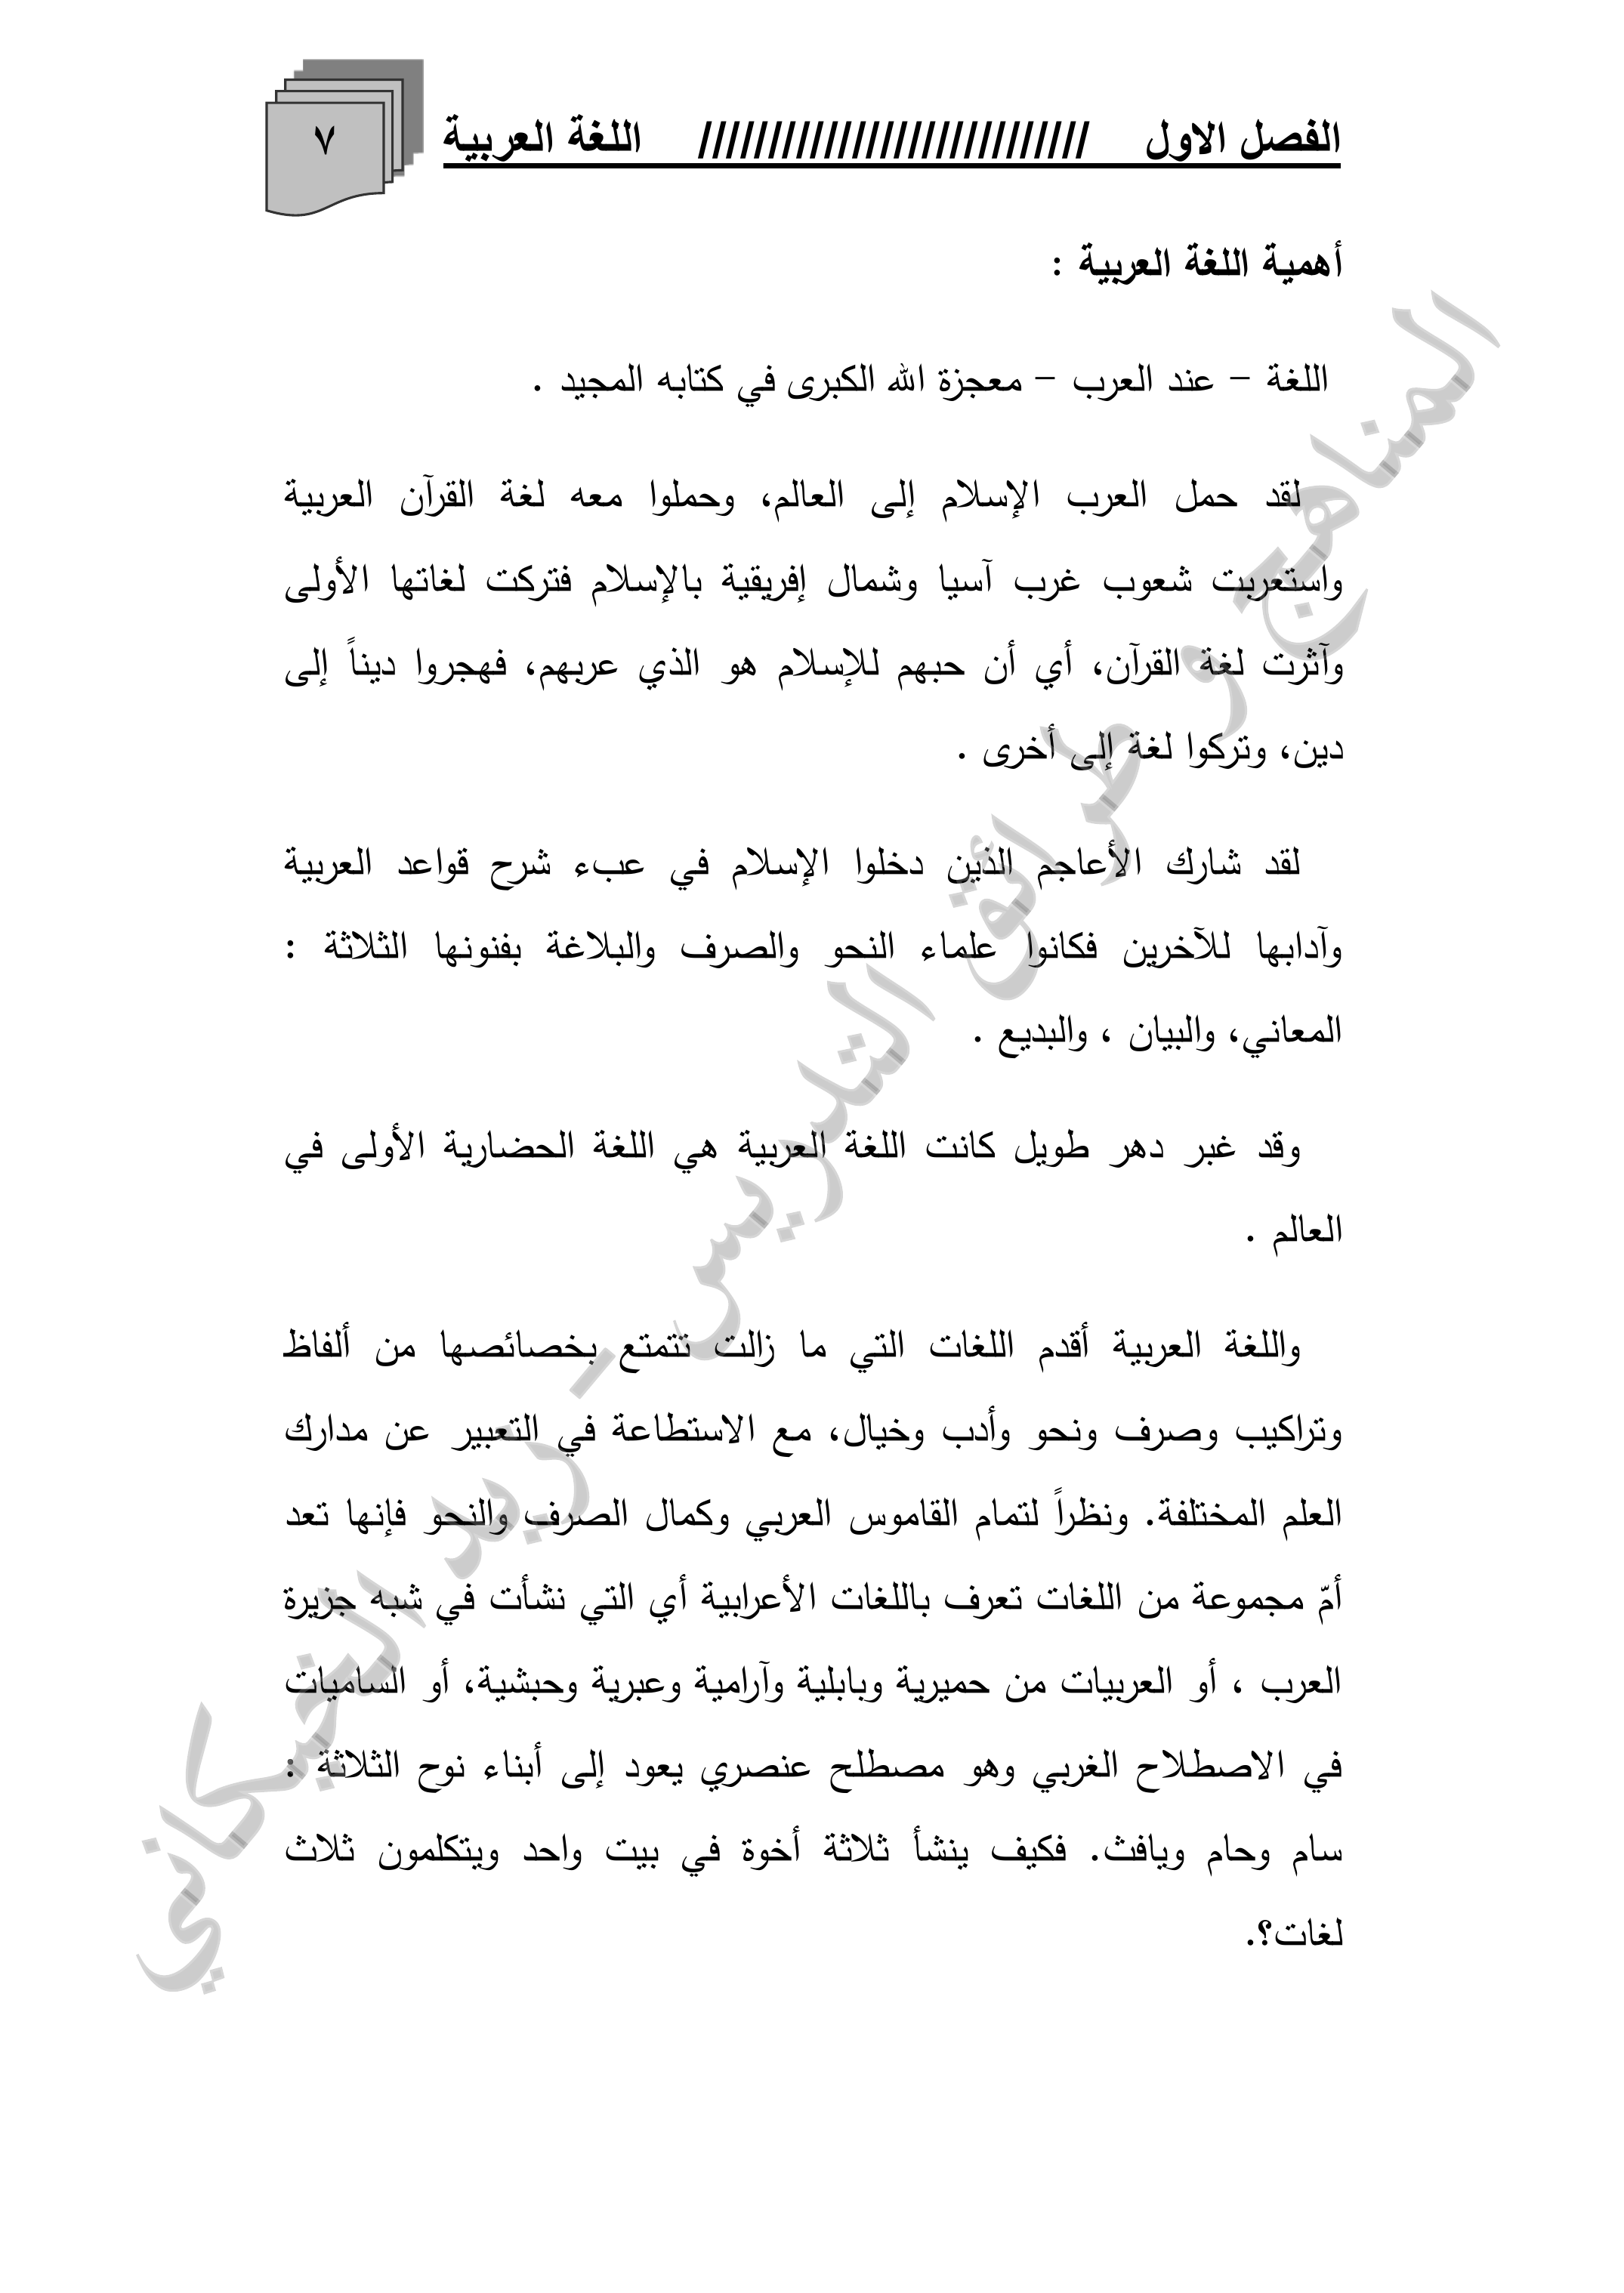 الفصل الاول //////////////////////////// اللغة العربية
٧
أهمية اللغة العربية :
اللغة – عند العرب – معجزة الله الكبرى في كتابه المجيد .
لقد حمل العرب الإسلام إلى العالم، وحملوا معه لغة القرآن العربية
واستعربت شعوب غرب آسيا وشمال إفريقية بالإسلام فتركت لغاتها الأولى
وآثرت لغة القرآن، أي أن حبهم للإسلام هو الذي عربهم، فهجروا ديناً إلى
دين، وتركوا لغة إلى أخرى .
لقد شارك الأعاجم الذين دخلوا الإسلام في عبء شرح قواعد العربية
وآدابها للآخرين فكانوا علماء النحو والصرف والبلاغة بفنونها الثلاثة :
المعاني، والبيان ، والبديع .
وقد غبر دهر طويل كانت اللغة العربية هي اللغة الحضارية الأولى في
العالم .
واللغة العربية أقدم اللغات التي ما زالت تتمتع بخصائصها من ألفاظ
وتراكيب وصرف ونحو وأدب وخيال، مع الاستطاعة في التعبير عن مدارك
العلم المختلفة. ونظراً لتمام القاموس العربي وكمال الصرف والنحو فإنها تعد
أمّ مجموعة من اللغات تعرف باللغات الأعرابية أي التي نشأت في شبه جزيرة
العرب ، أو العربيات من حميرية وبابلية وآرامية وعبرية وحبشية، أو الساميات
في الاصطلاح الغربي وهو مصطلح عنصري يعود إلى أبناء نوح الثلاثة :
سام وحام ويافث. فكيف ينشأ ثلاثة أخوة في بيت واحد ويتكلمون ثلاث
لغات؟.
المناهج و طرائق التدريس - زيد الخيكاني